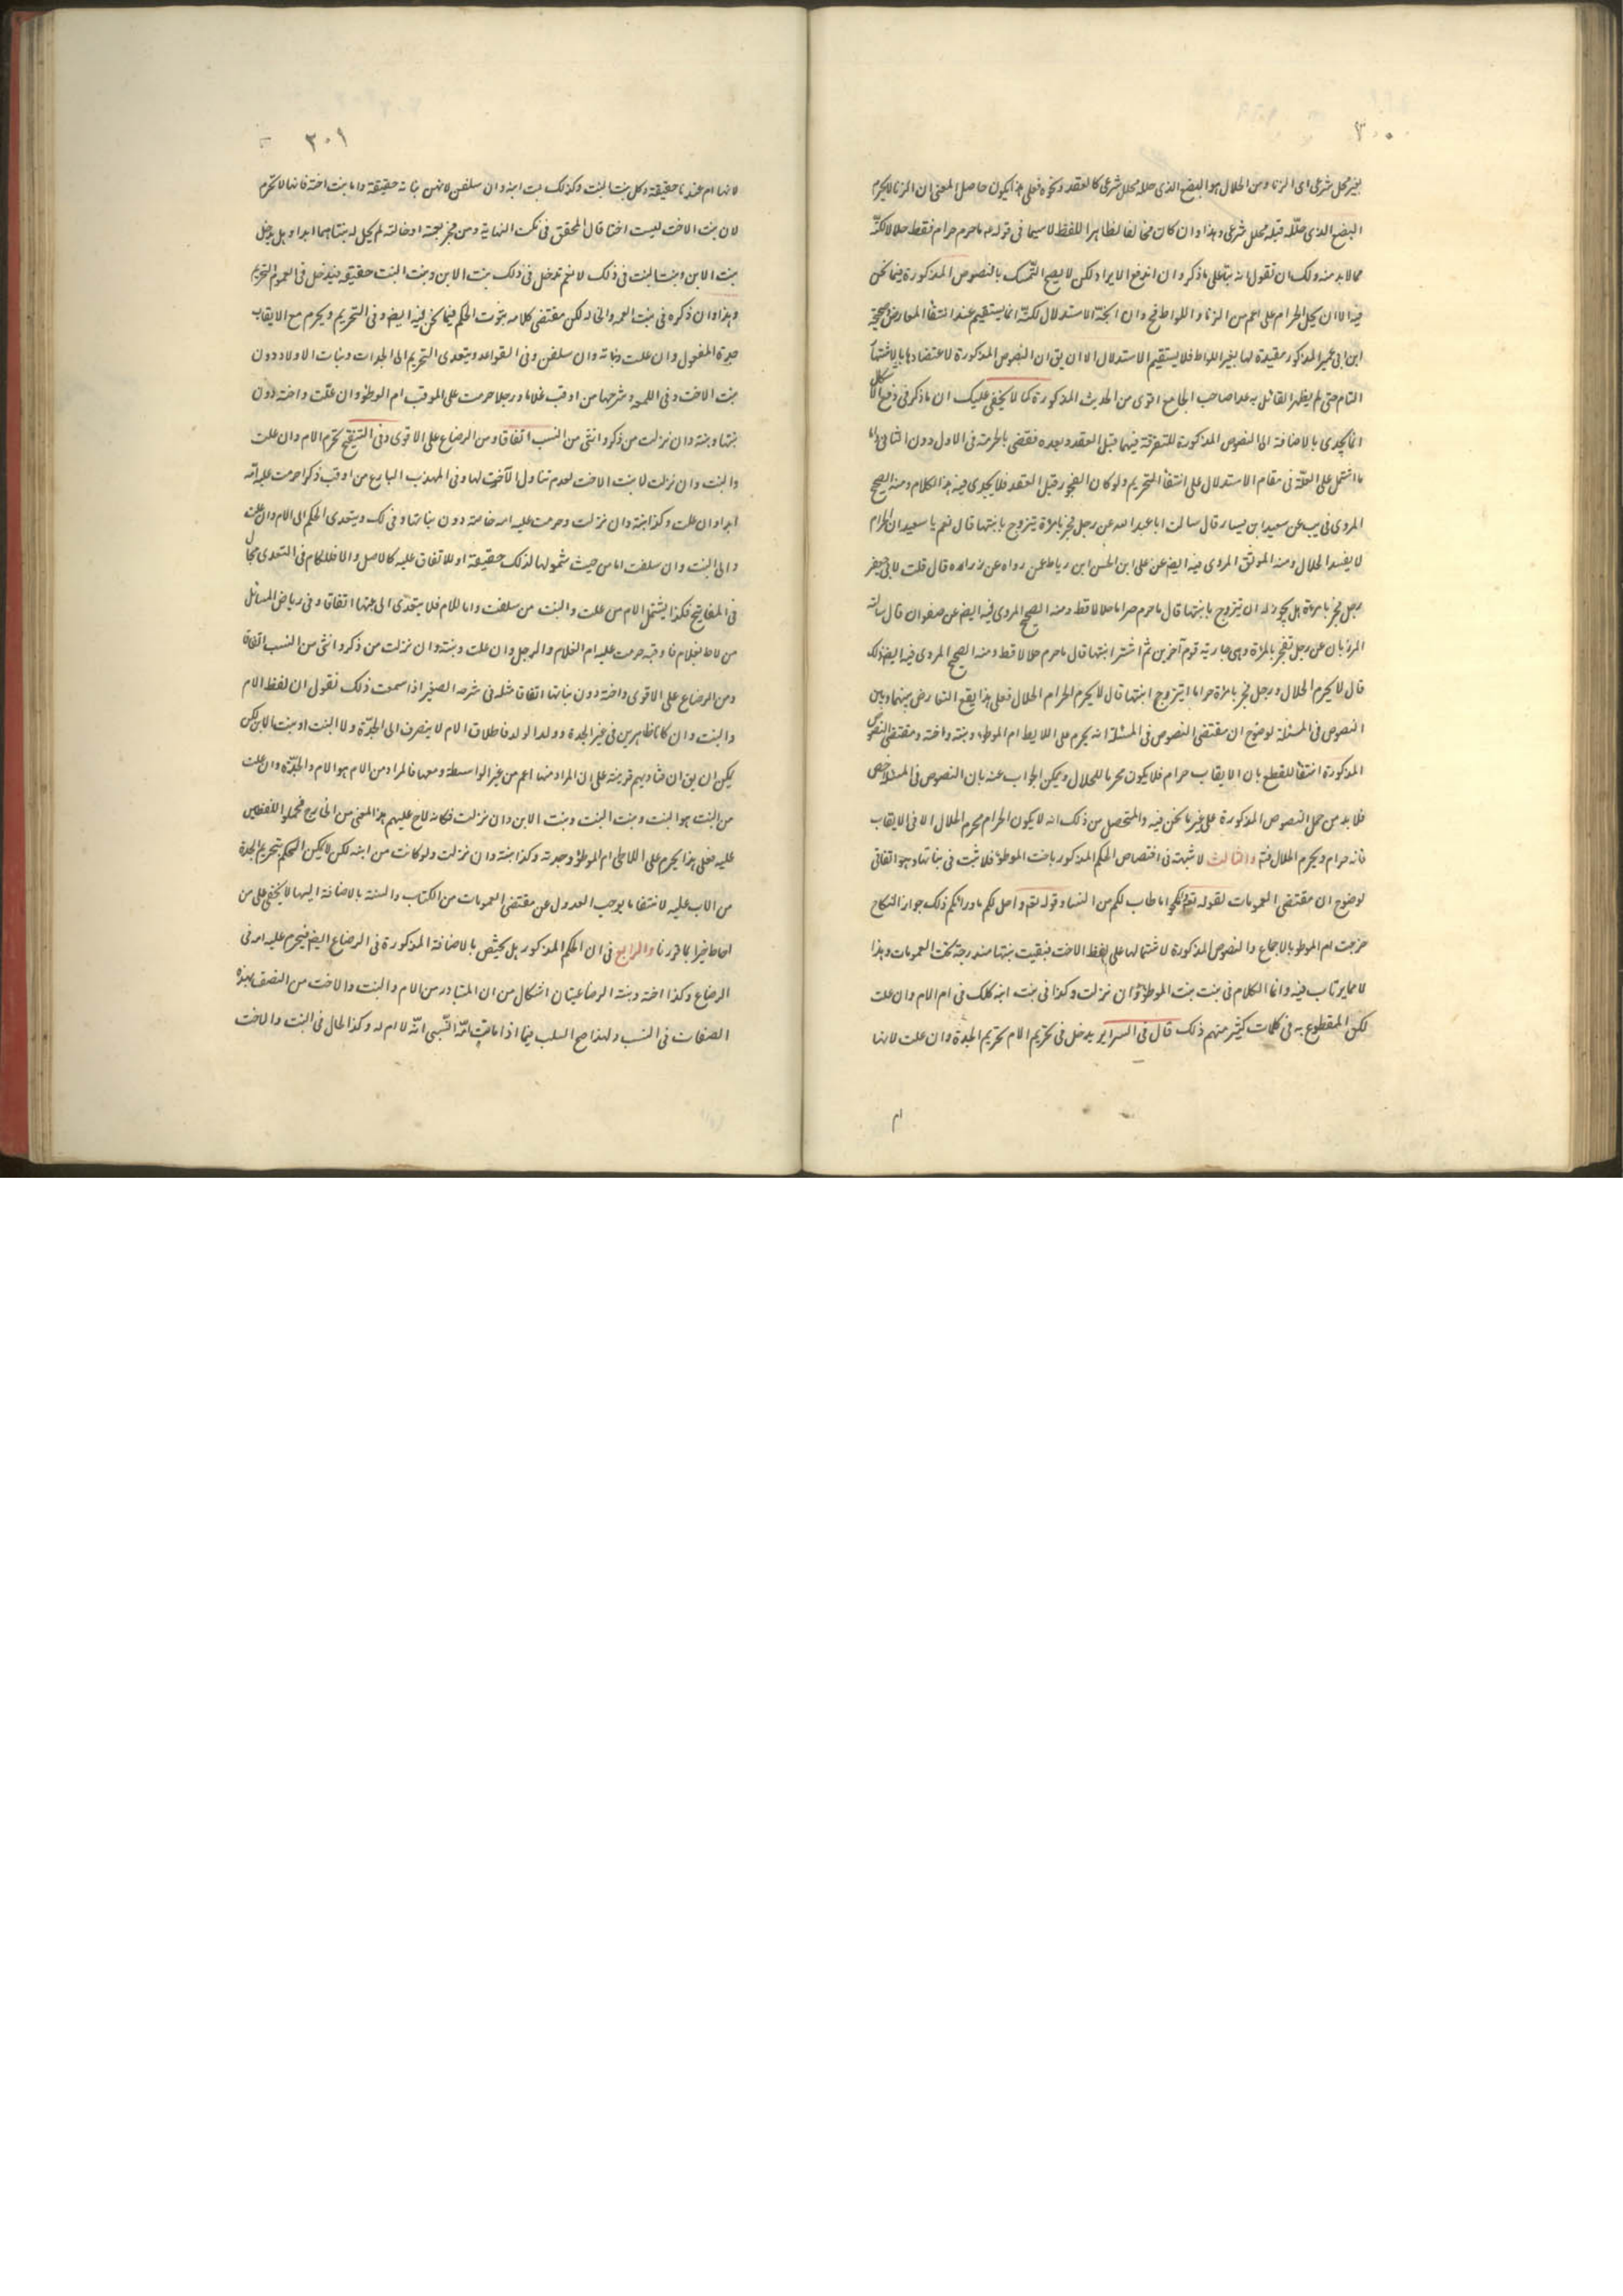 ٣٠٠
بغير محلل شرعى اى الزنا ومن الحلال هو البضع الذى حلله محلل شرعى كالعقد ونحوه فعلى هذا يكون حاصل المعنى ان الزنا لا يحرم
البضع الذى حلله قبله محلل شرعى وهذا وان كان مخالفا لظاهر اللفظ لا سيما فى قوله ما حرم حرام فقط حلالا لكنه
مما لا بد منه ولك ان تقول انه بناء على ما ذكر وان اندفع الايراد لكن لا يصح التمسك بالنصوص المذكورة فيما نحن
فيه الا ان يحمل الحرام على اعم من الزنا واللواط فح وان اتجه الاستدلال لكنه انما يستقيم عند انتفاء المعارض وصحيحة
ابن ابى عمير المذكور مقيدة لها بغير اللواط فلا يستقيم الاستدلال الا ان يق ان النصوص المذكورة لاعتضادها بالاشتهار
التام حتى لم يظهر القائل به عدا صاحب الجامع اقوى من الحديث المذكورة كما لا يخفى عليك ان ما ذكر فى دفع الاشكال
انما يجدى بالاضافة الى النصوص المذكورة للتفرقة فيهما قبل العقد وبعده فقضى بالحرمة فى الاول دون الثانى واما
ما اشتمل على العلة فى مقام الاستدلال على انتفاء التحريم ولو كان الفجور قبل العقد فلا يجدى فيه هذا الكلام ومنه الصحيح
المروى فى يب عن سعيد ابن يسار قال سالت ابا عبد الله عن رجل فجر بامراة يتزوج بابنتها قال نعم يا سعيد ان الحرام
لا يفسد الحلال ومنه الموثق المروى فيه ايضا عن على ابن الحسن ابن رباط عمن رواه عن زرارة قال قلت لابى جعفر
رجل فجر بامراة هل يجوز له ان يتزوج بابنتها قال ما حرم حراما حلالا قط ومنه الصحيح المروى فيه ايضا عن صفوان قال ساله
المرزبان عن رجل يفجر بالمراة وهى جارية قوم آخرين ثم اشترى ابنتها قال ما حرم حلالا قط ومنه الصحيح المروى فيه ايضا كذلك
قال لا يحرم الحلال ورجل فجر بامراة حراما ايتزوج ابنتها قال لا يحرم الحرام الحلال فعلى هذا يقع التعارض بينهما وبين
النصوص فى المسئلة لوضوح ان مقتضى النصوص فى المسئلة انه يحرم على اللايط ام الموطوء وبنته واخته ومقتضى النصوص
المذكورة انتفائه للقطع بان الايقاب حرام فلا يكون محرما للحلال ويمكن الجواب عنه بان النصوص فى المسئلة اخص
فلا بد من حمل النصوص المذكورة على غير ما نحن فيه والمتحصل من ذلك انه لا يكون الحرام محرم الحلال الا فى الايقاب
فانه حرام ويحرم الحلال فته والثالث لا شبهة فى اختصاص الحكم المذكور باخت الموطوء فلا يثبت فى بناتها وهو اتفاقى
لوضوح ان مقتضى العمومات لقوله تعالى فانكحوا ما طاب لكم من النساء وقوله تعالى واحل لكم ما وراء ذلكم جواز النكاح
خرجت ام الموطو بالاجماع والنصوص المذكورة لاشتمالها على لفظ الاخت فبقيت بنتها مندرجة تحت العمومات وهذا
لا مما يرتاب فيه وانما الكلام فى بنت بنت الموطوء وان نزلت وكذا فى بنت ابنه كذلك فى ام الام وان علت
لكن المقطوع به فى كلمات كثير منهم ذلك قال فى السراير يدخل فى تحريم الام تحريم الجدة وان علت لانها
ام
٣٠١
لانها ام عندنا حقيقة وكل بنت البنت وكذلك بنت ابنه وان سلفن لانهن بناته حقيقة واما بنت اخته فانها لا تحرم
لان بنت الاخت ليست اختا قال المحقق فى نكت النهاية ومن فجر بعمته او خالته لم يحل له بنتاهما ابدا وهل يدخل
بنت الابن وبنت البنت فى ذلك لا نعم تدخل فى ذلك بنت الابن وبنت البنت حقيقة فيدخل فى العموم التحريم
وهذا وان ذكره فى بنت العمه والخاله لكن مقتضى كلامه ثبوت الحكم فيما نحن فيه ايضا وفى التحرير ويحرم مع الايقاب
جدة المفعول وان علت وبناته وان سلفن وفى القواعد ويتعدى التحريم الى الجدات وبنات الاولاد دون
بنت الاخت وفى اللمعه وشرحها من اوقب غلاما او رجلا حرمت على الموقب ام الموطوء وان علت واخته دون
بنتها وبنته وان نزلت من ذكر وانثى من النسب اتفاقا ومن الرضاع على الاقوى وفى التنقيح تحرم الام وان علت
والبنت وان نزلت لا بنت الاخت لعدم تناول الاخت لها وفى المهذب البارع من اوقب ذكرا حرمت عليه امه
ابدا وان علت وكذا بنته وان نزلت وحرمت عليه اخته خاصة دون بناتها وفى لك ويتعدى الحكم الى الام وان علت
والى البنت وان سلفت اما من حيث شمولها لذلك حقيقة او للاتفاق عليه كالاصل والا فللكلام فى التعدى مجال
فى المفاتيح فكذا يشتمل الام من علت والبنت من سلفت واما اللام فلا يتعدى الى بنتها اتفاقا وفى رياض المسائل
من لاط بغلام فاوقبه حرمت عليه ام الغلام والرجل وان علت وبنته وان نزلت من ذكر وانثى من النسب اتفاقا
ومن الرضاع على الاقوى واخته دون بناتها اتفاقا مثله فى شرحه الصغير اذا سمعت ذلك نقول ان لفظ الام
والبنت وان كانا ظاهرين فى غير الجدة وولد الولد فاطلاق الام لا ينصرف الى الجدة ولا البنت الى بنت الابن لكن
يمكن ان يق ان فتاويهم قرينة على ان المراد منها اعم من غير الواسطة ومعها فالمراد من الام هو الام والجدة وان علت
من البنت هو البنت وبنت البنت وبنت الابن وان نزلت فكانه لاح عليهم هذا المعنى من الخارج فحملوا اللفظين
عليه فعلى هذا يحرم على اللاطى ام الموطوء وجدته وكذا بنته وان نزلت ولو كانت من ابنه لكن لا يمكن الحكم بتحريم الجدة
من الاب عليه لانتفاء ما يوجب العدول عن مقتضى العمومات من الكتاب والسنة بالاضافة اليها لا يخفى على من
احاط خبرا بما قررنا والرابع فى ان الحكم المذكور هل يختص بالاضافة المذكورة فى الرضاع ايضا فيحرم عليه امه فى
الرضاع وكذا اخته وبنته الرضاعيتان اشكال من ان المتبادر من الام والبنت والاخت من اتصف بهذه
الصفات فى النسب ولهذا صح السلب فيما اذا ماتت امه النسبى انه لا ام له وكذا الحال فى البنت والاخت